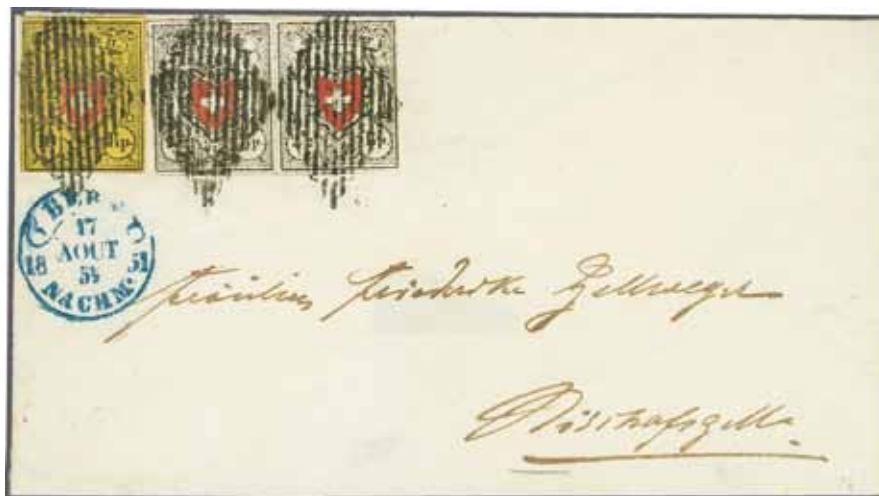 BERN
17
AOUT
18 5¼ 51
NACHM.
Fräulein Friederike Zellweger
Bischofszell.